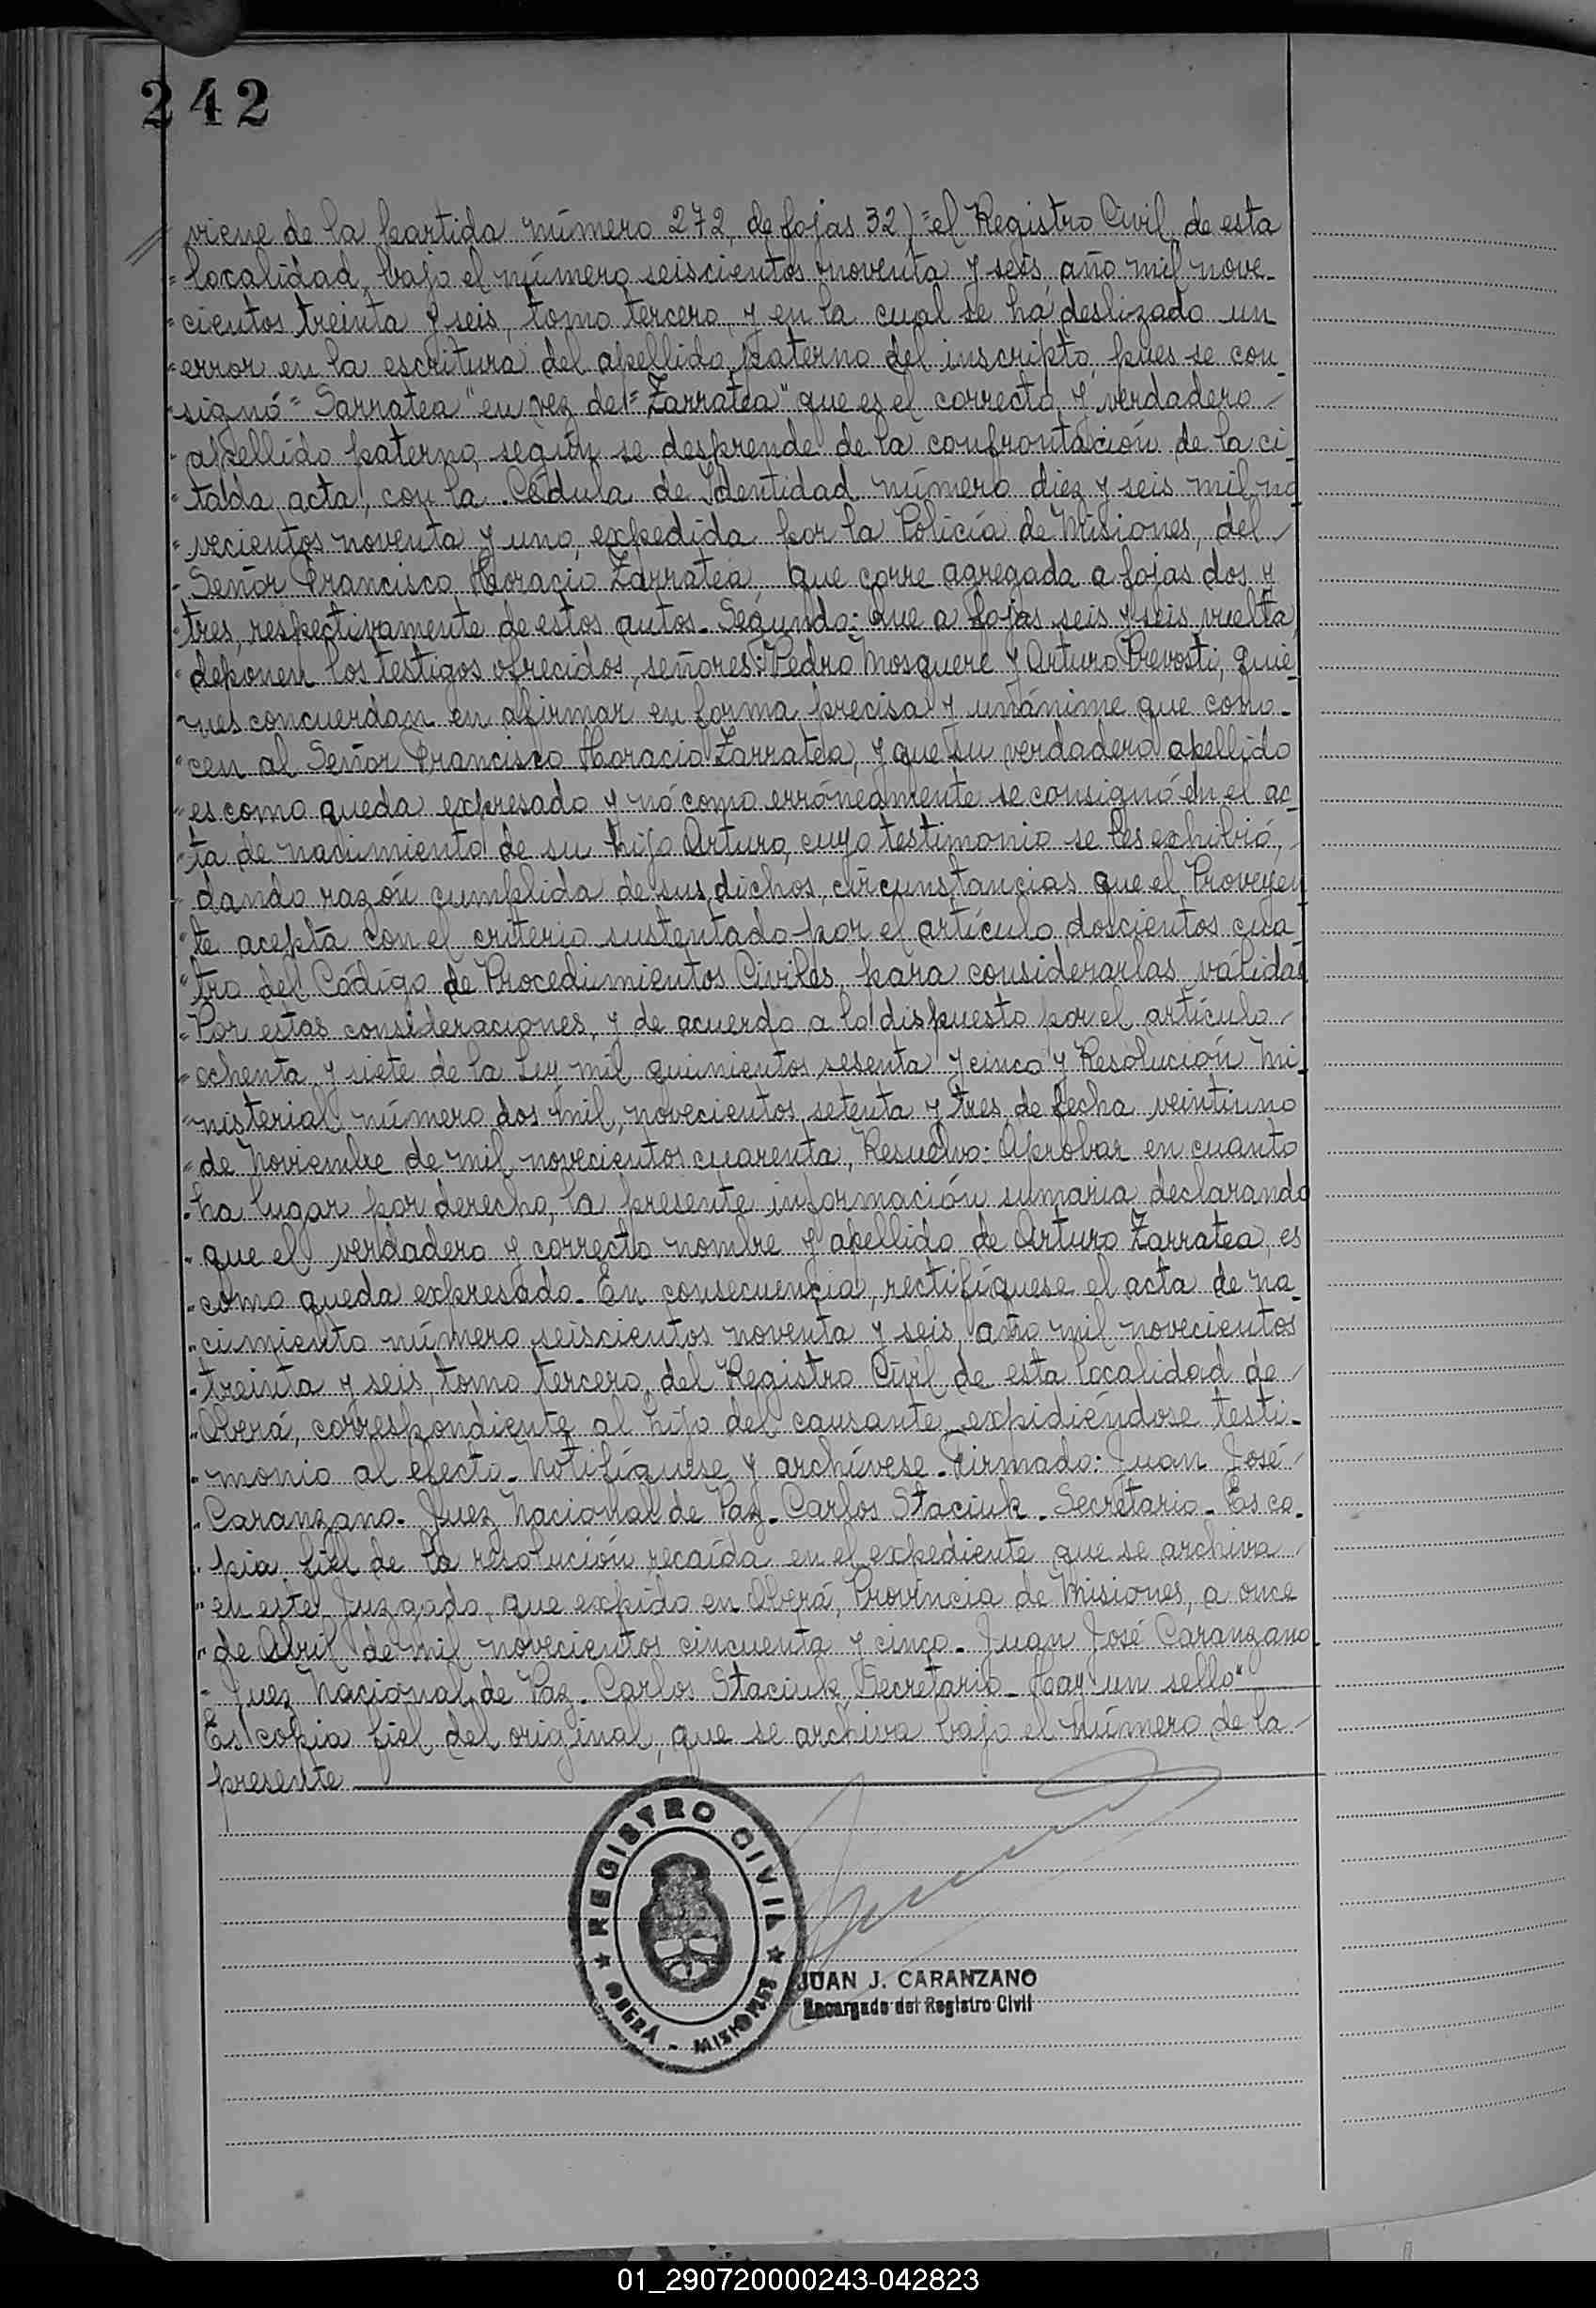 242
viene de la partida número 272, de fojas 32) "el Registro Civil de esta
" localidad, bajo el número seiscientos noventa y seis, año mil nove-
" cientos treinta y seis, tomo tercero, y en la cual se há deslizado un
" error en la escritura del apellido paterno del inscripto, pues se con-
" signó "Sarratea" en vez de "Zarratea" que es el correcto y verdadero
" apellido paterno, según se desprende de la confrontación de la ci-
" tada acta, con la Cédula de Identidad número diez y seis mil no
" vecientos noventa y uno, expedida por la Policía de Misiones, del
" Señor Francisco Horacio Zarratea que corre agregada a fojas dos y
" tres, respectivamente de estos autos. Segundo: Que a fojas seis y seis vuelta,
" deponen los testigos ofrecidos, señores: Pedro Mosquere y Arturo Prevosti, quie-
" nes concuerdan en afirmar en forma precisa y unánime que cono-
" cen al Señor Francisco Horacio Zarratea, y que su verdadero apellido
" es como queda expresado y nó como erróneamente se consignó en el ac-
" ta de nacimiento de su hijo Arturo, cuyo testimonio se les exhibió,
" dando razón cumplida de sus dichos, circunstancias que el Proveyen
" te acepta con el criterio sustentado por el artículo doscientos cua-
" tro del Código de Procedimientos Civiles, para considerarlas válidas
" Por estas consideraciones, y de acuerdo a lo dispuesto por el artículo
" ochenta y siete de la Ley mil quinientos sesenta y cinco y Resolución Mi-
" nisterial número dos mil, novecientos setenta y tres de fecha veintiuno
" de Noviembre de mil novecientos cuarenta, Resuelvo: Aprobar en cuanto
" ha lugar por derecho, la presente información sumaria declarando
" que el verdadero y correcto nombre y apellido de Arturo Zarratea, es
" como queda expresado. En consecuencia, rectifíquese el acta de na-
" cimiento número seiscientos noventa y seis, año mil novecientos
" treinta y seis, tomo tercero, del Registro Civil de esta localidad de
" Oberá, correspondiente al hijo del causante, expidiéndose testi-
" monio al efecto. Notifíquese y archívese. Firmado: Juan José
" Caranzano. Juez Nacional de Paz. Carlos Staciuk. Secretario. Es co-
" pia fiel de la resolución recaída en el expediente que se archiva
" en este Juzgado, que expido en Oberá, Provincia de Misiones, a once
" de Abril de mil novecientos cincuenta y cinco. Juan José Caranzano
" Juez Nacional de Paz. Carlos Staciuk, Secretario. Hay un sello"
Es copia fiel del original, que se archiva bajo el número de la
presente
REGISTRO CIVIL
OBERÁ - MISIONES
JUAN J. CARANZANO
Encargado del Registro Civil
01_290720000243-042823